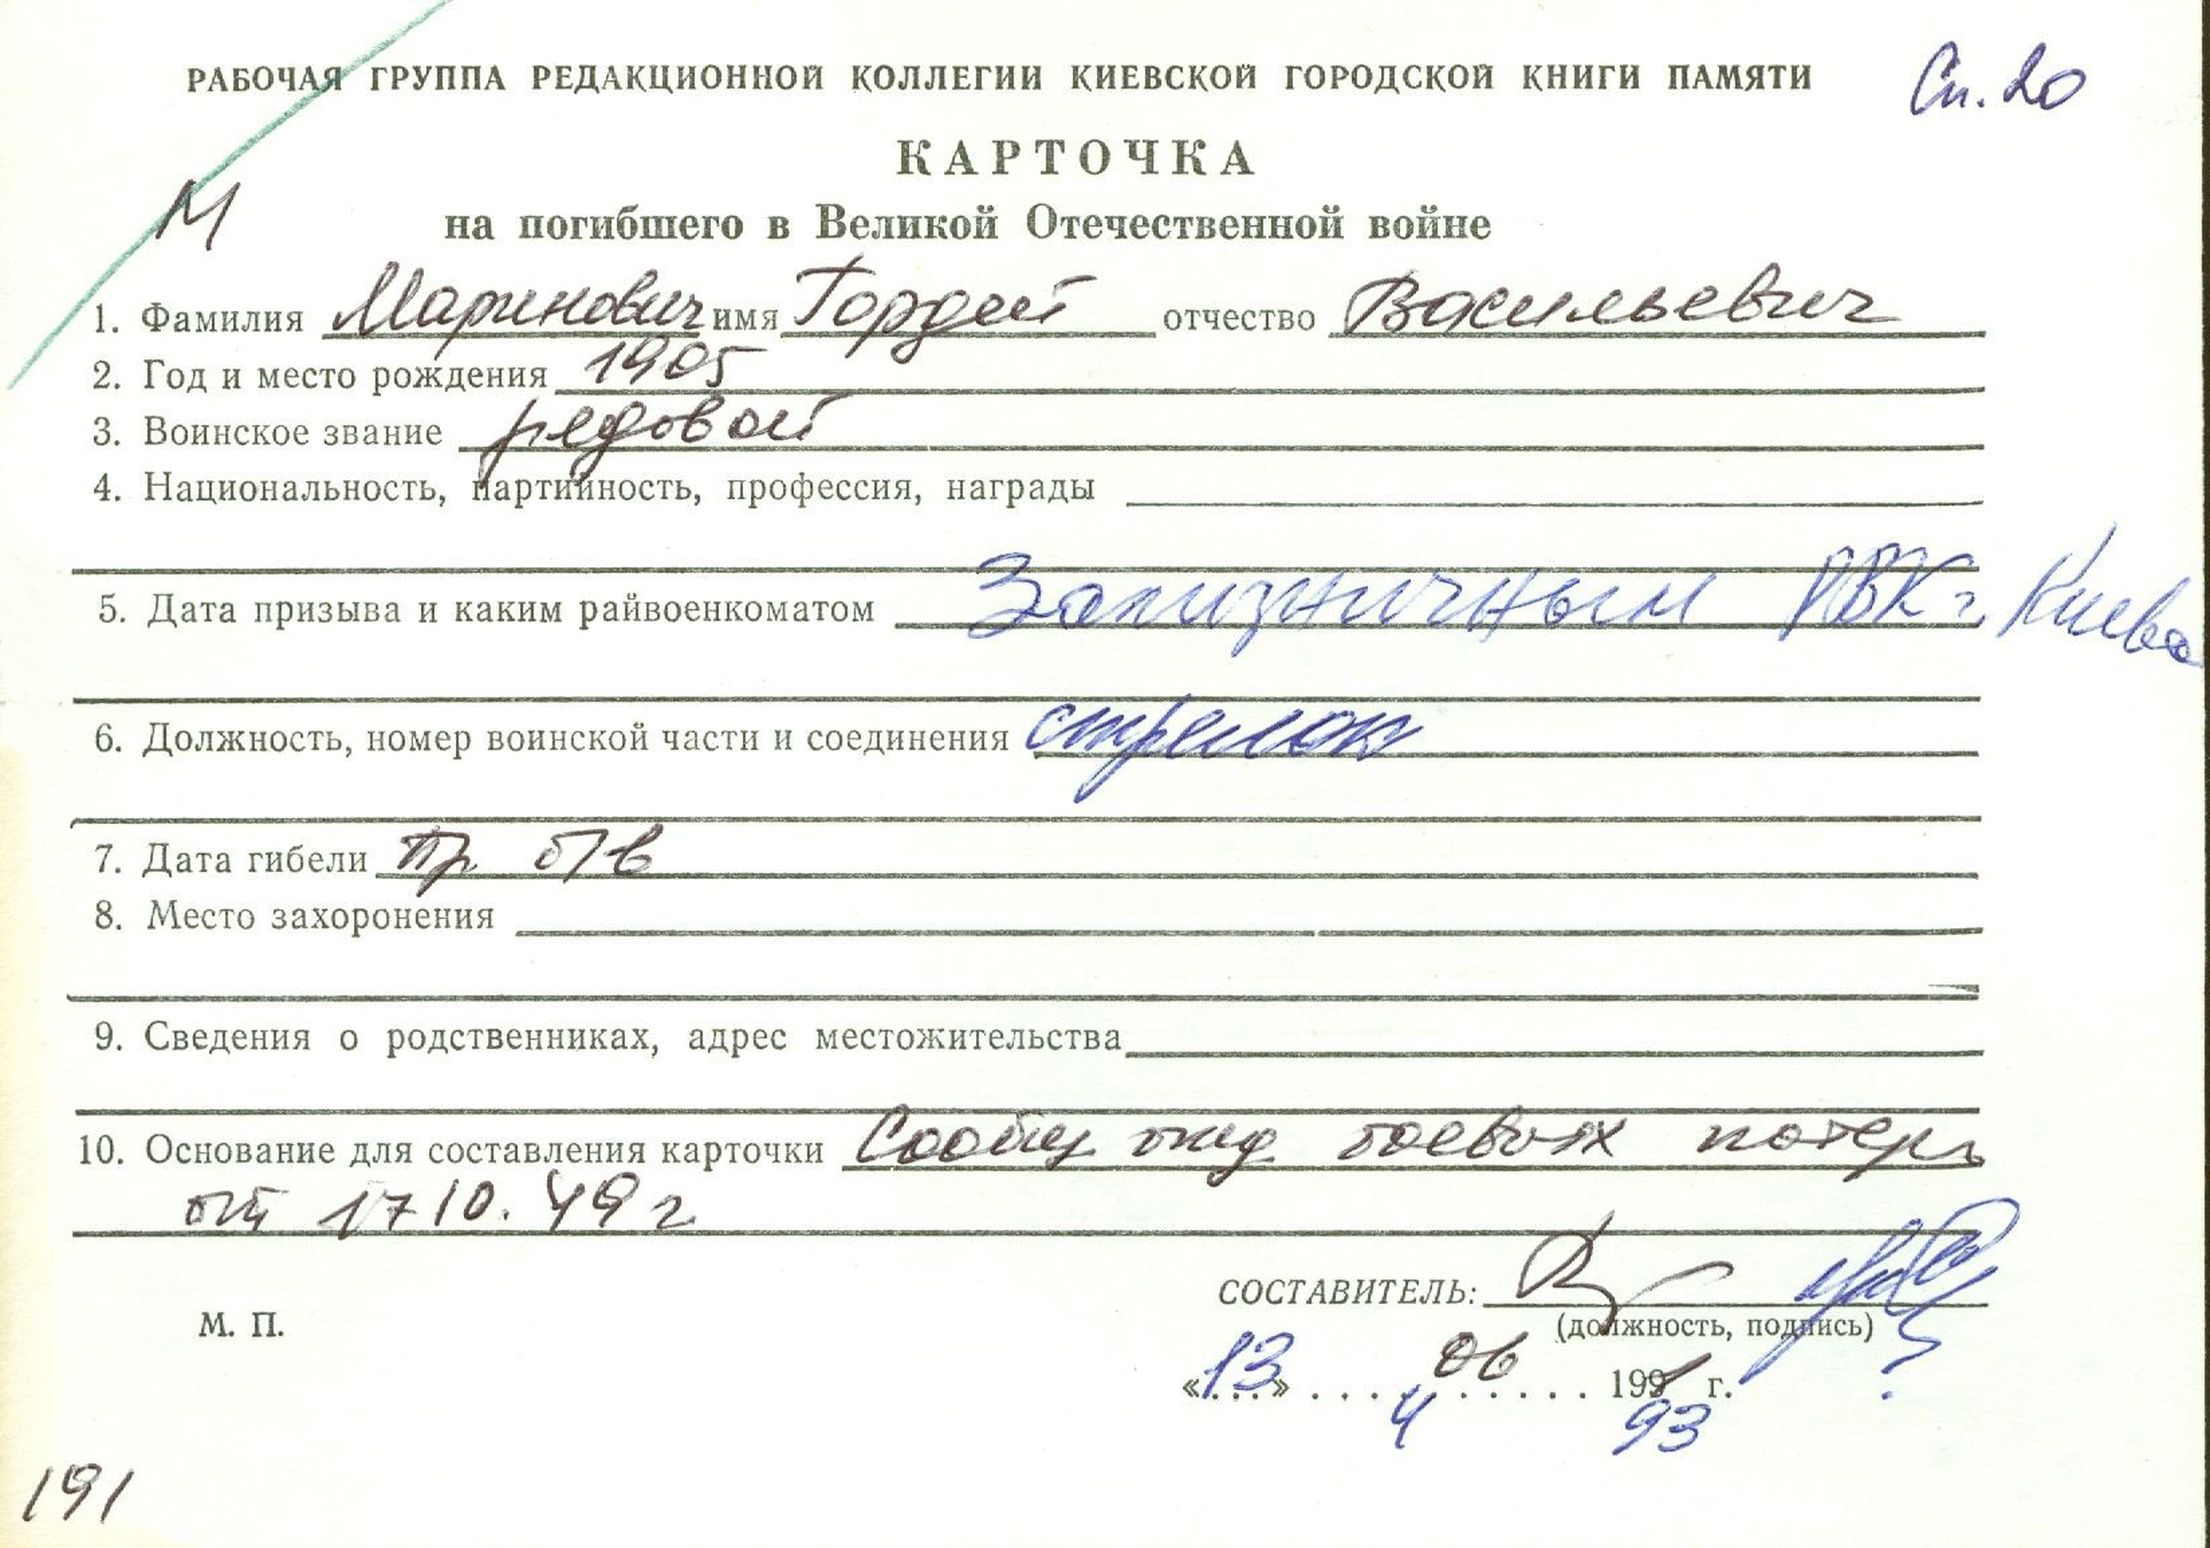 РАБОЧАЯ ГРУППА РЕДАКЦИОННОЙ КОЛЛЕГИИ КИЕВСКОЙ ГОРОДСКОЙ КНИГИ ПАМЯТИ Сп. 20
КАРТОЧКА
М
на погибшего в Великой Отечественной войне
1. Фамилия Маринович имя Гордей отчество Васильевич
2. Год и место рождения 1905
3. Воинское звание рядовой
4. Национальность, партийность, профессия, награды
5. Дата призыва и каким райвоенкоматом Зализничным РВК г. Киева
6. Должность, номер воинской части и соединения стрелок
7. Дата гибели пр б/в
8. Место захоронения
9. Сведения о родственниках, адрес местожительства
10. Основание для составления карточки Сообщ боевых потерь
от 17 10. 49 г
СОСТАВИТЕЛЬ:
М. П.
(должность, подпись)
«13» 06 1991 г.
4 93
191